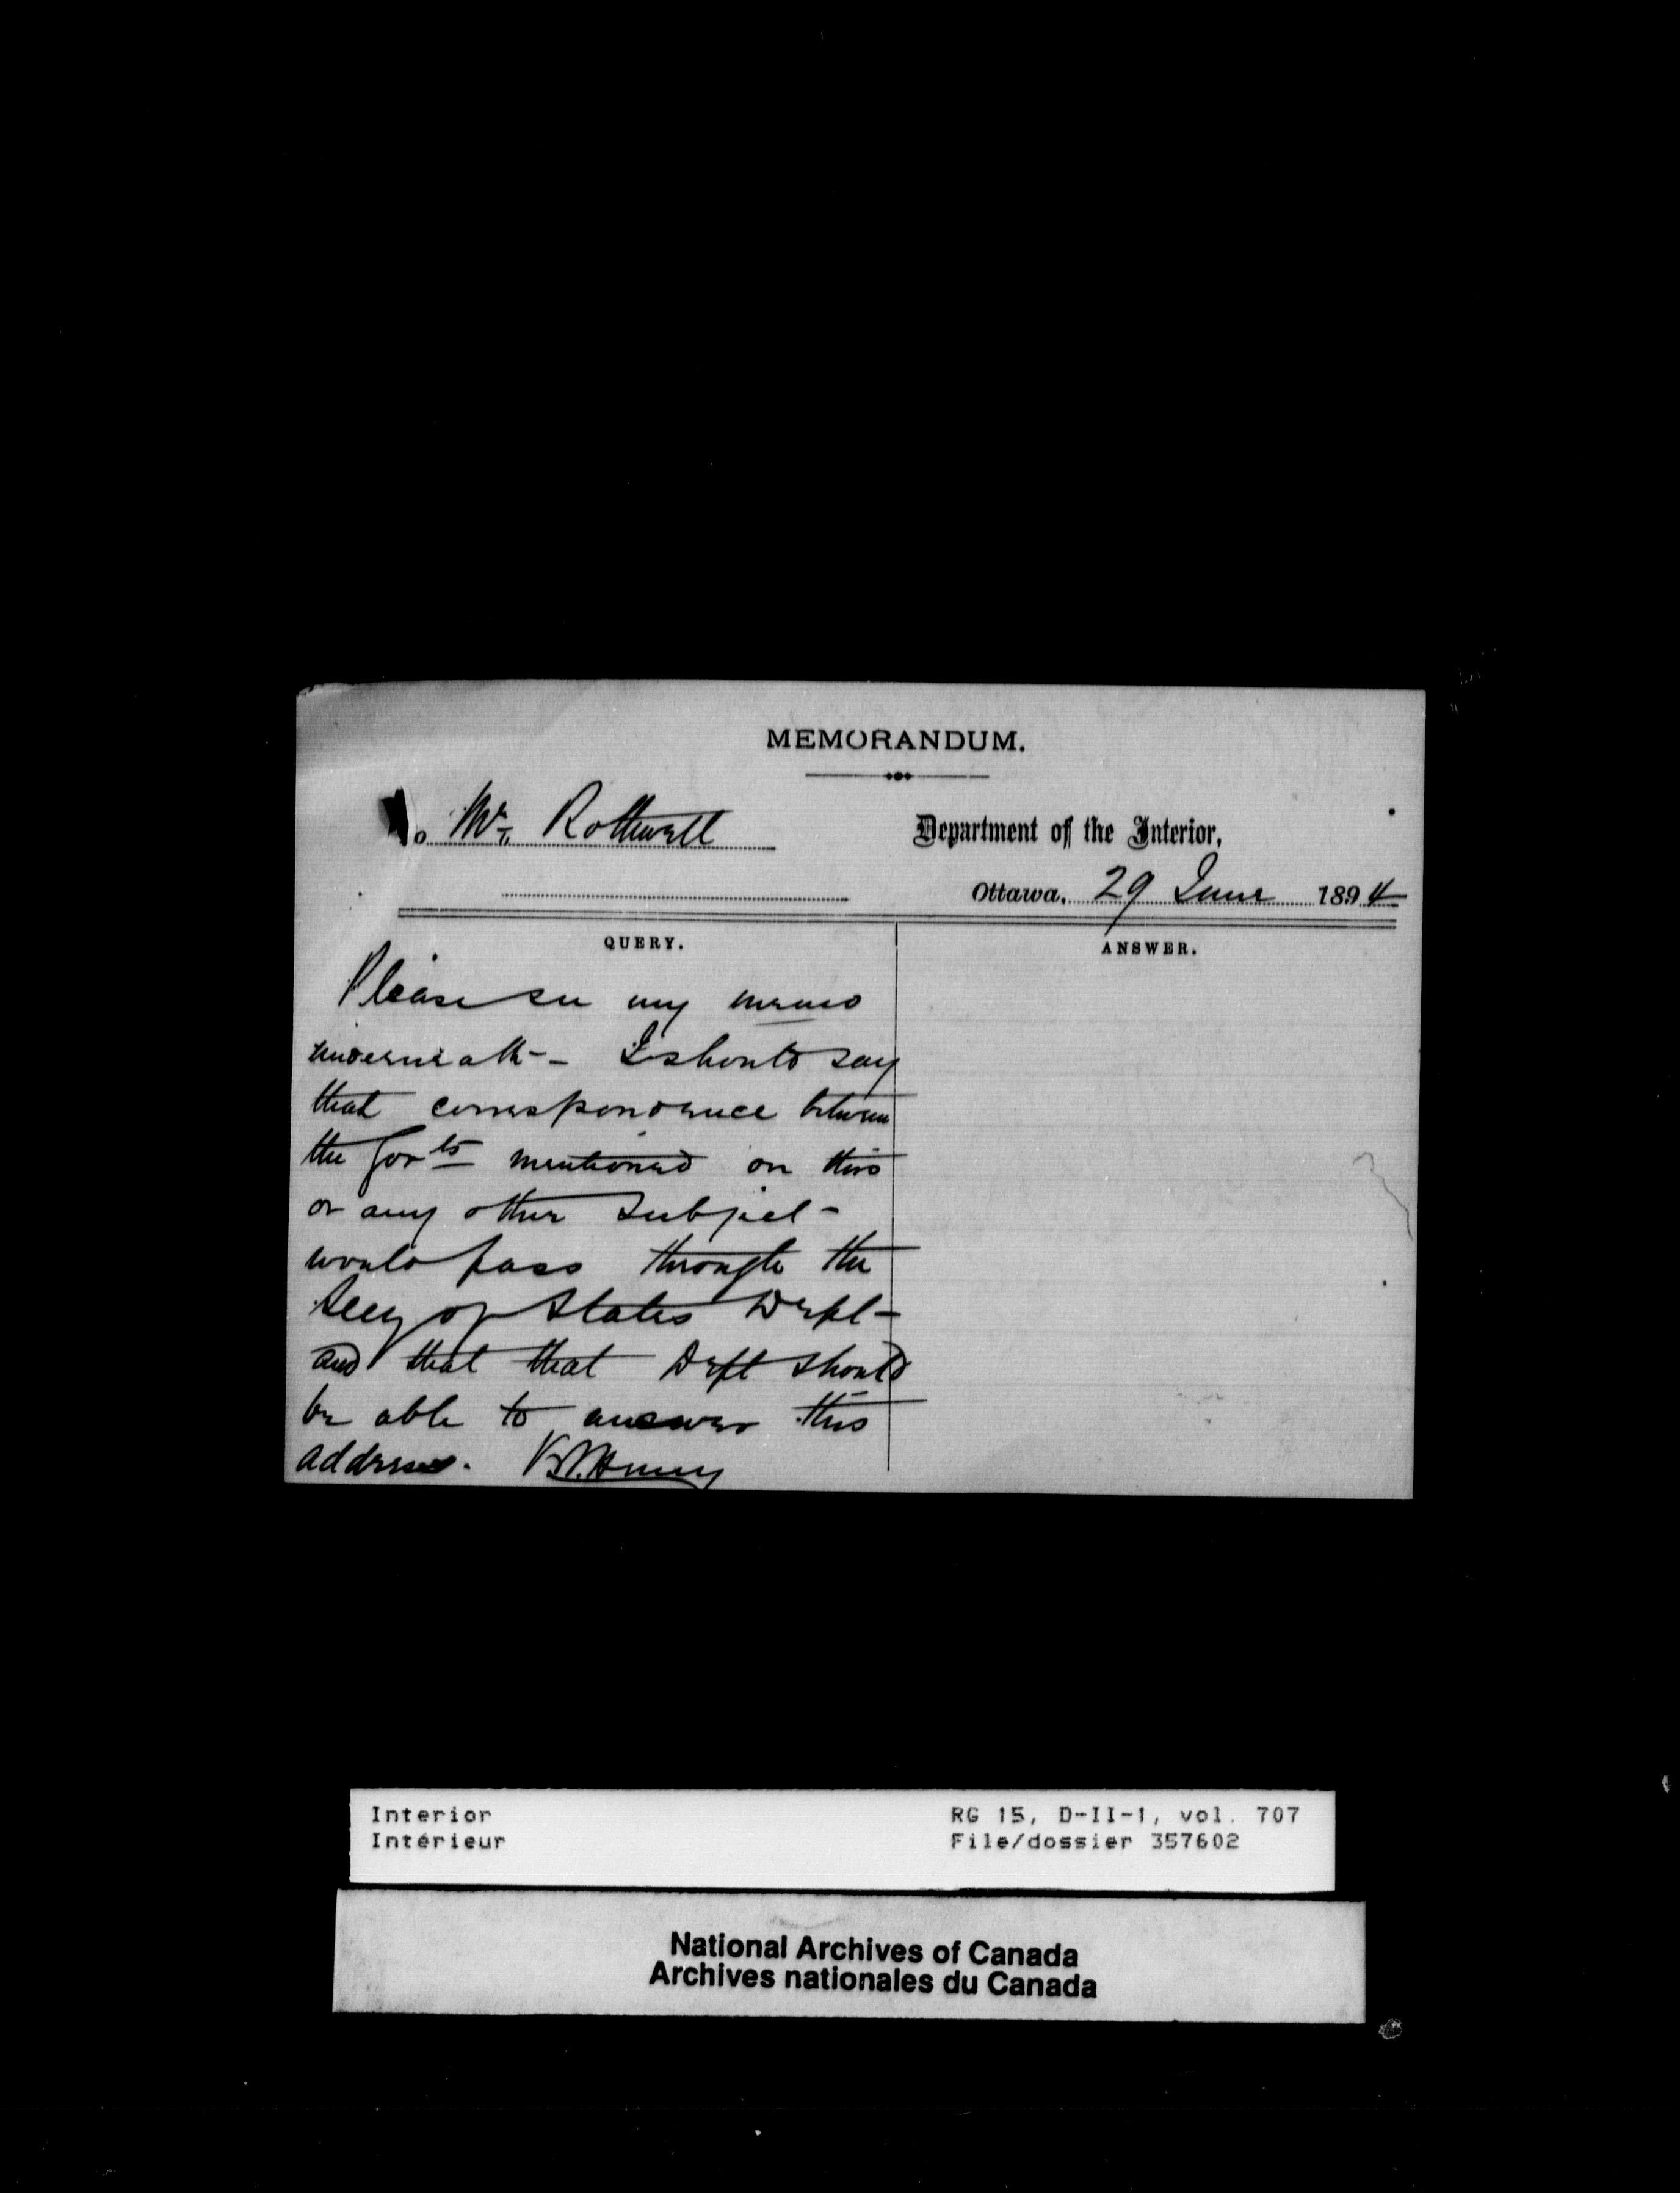 MEMORANDUM.
To Mr. Rothwell
Department of the Interior,
Ottawa, 29 June 1894
QUERY.
ANSWER.
Please see my memo
underneath - I should say
that correspondence between
the Govts mentioned on this
or any other subject -
would pass through the
Secy of States Dept -
and that that Dept should
be able to answer this
address.
Interior
Intérieur
RG 15, D-II-1, vol. 707
File/dossier 357602
National Archives of Canada
Archives nationales du Canada